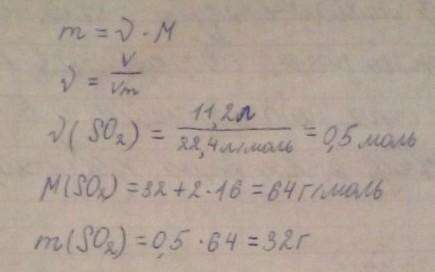 m = ν · M
ν = V/Vm
ν(SO₂) = 11,2л/22,4л/моль = 0,5 моль
M(SO₂) = 32 + 2 · 16 = 64 г/моль
m(SO₂) = 0,5 · 64 = 32 г